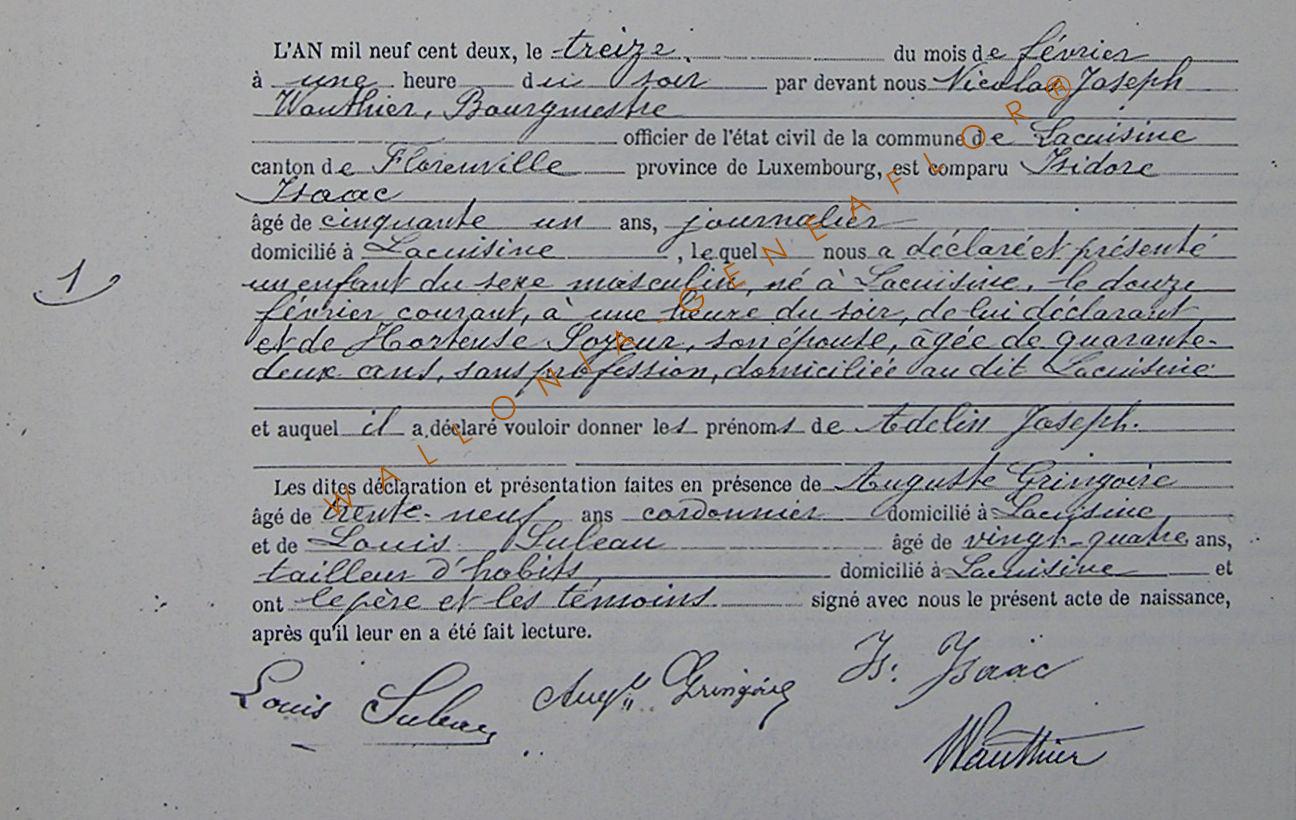 L'AN mil neuf cent deux, le treize du mois de février
à une heure du soir par devant nous Nicolas Joseph
Wauthier, Bourgmestre
officier de l'état civil de la commune de Lacuisine
canton de Florenville province de Luxembourg, est comparu Isidore
Isaac
âgé de cinquante un ans, journalier
domicilié à Lacuisine, lequel nous a déclaré et présenté
un enfant du sexe masculin, né à Lacuisine, le douze
février courant, à une heure du soir, de lui déclarant
et de Hortense Soyeur, son épouse, âgée de quarante-
deux ans, sans profession, domiciliée au dit Lacuisine
et auquel il a déclaré vouloir donner les prénoms de Adelin Joseph.
Les dites déclaration et présentation faites en présence de Auguste Gringoire
âgé de trente-neuf ans cordonnier domicilié à Lacuisine
et de Louis Suleau âgé de vingt-quatre ans,
tailleur d'habits, domicilié à Lacuisine et
ont le père et les témoins signé avec nous le présent acte de naissance,
après qu'il leur en a été fait lecture.
1
Louis Suleau Augte Gringoire Is. Isaac
Wauthier
WALLONIA-GENEAFLOR®